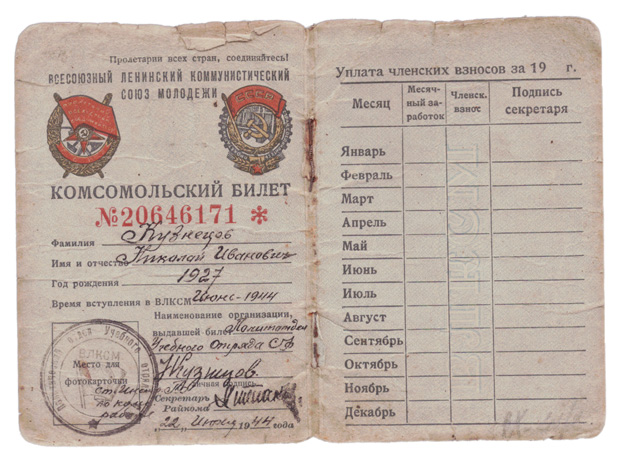 Пролетарии всех стран, соединяйтесь!
ВСЕСОЮЗНЫЙ ЛЕНИНСКИЙ КОММУНИСТИЧЕСКИЙ
СОЮЗ МОЛОДЕЖИ
КОМСОМОЛЬСКИЙ БИЛЕТ
№20646171 *
Фамилия Кузнецов
Имя и отчество Николай Иванович
Год рождения 1927
Время вступления в ВЛКСМ Июнь-1944
Наименование организации,
выдавшей билет Политотдел
Учебного Отряда СФ
ВЛКСМ
Место для
фотокарточки
Кузнецов
Личная подпись
Секретарь
Райкома
"22" Июня 1944 года
Уплата членских взносов за 19 г.
Месяц
Месяч-
ный за-
работок
Членск.
взнос
Подпись
секретаря
Январь
Февраль
Март
Апрель
Май
Июнь
Июль
Август
Сентябрь
Октябрь
Ноябрь
Декабрь